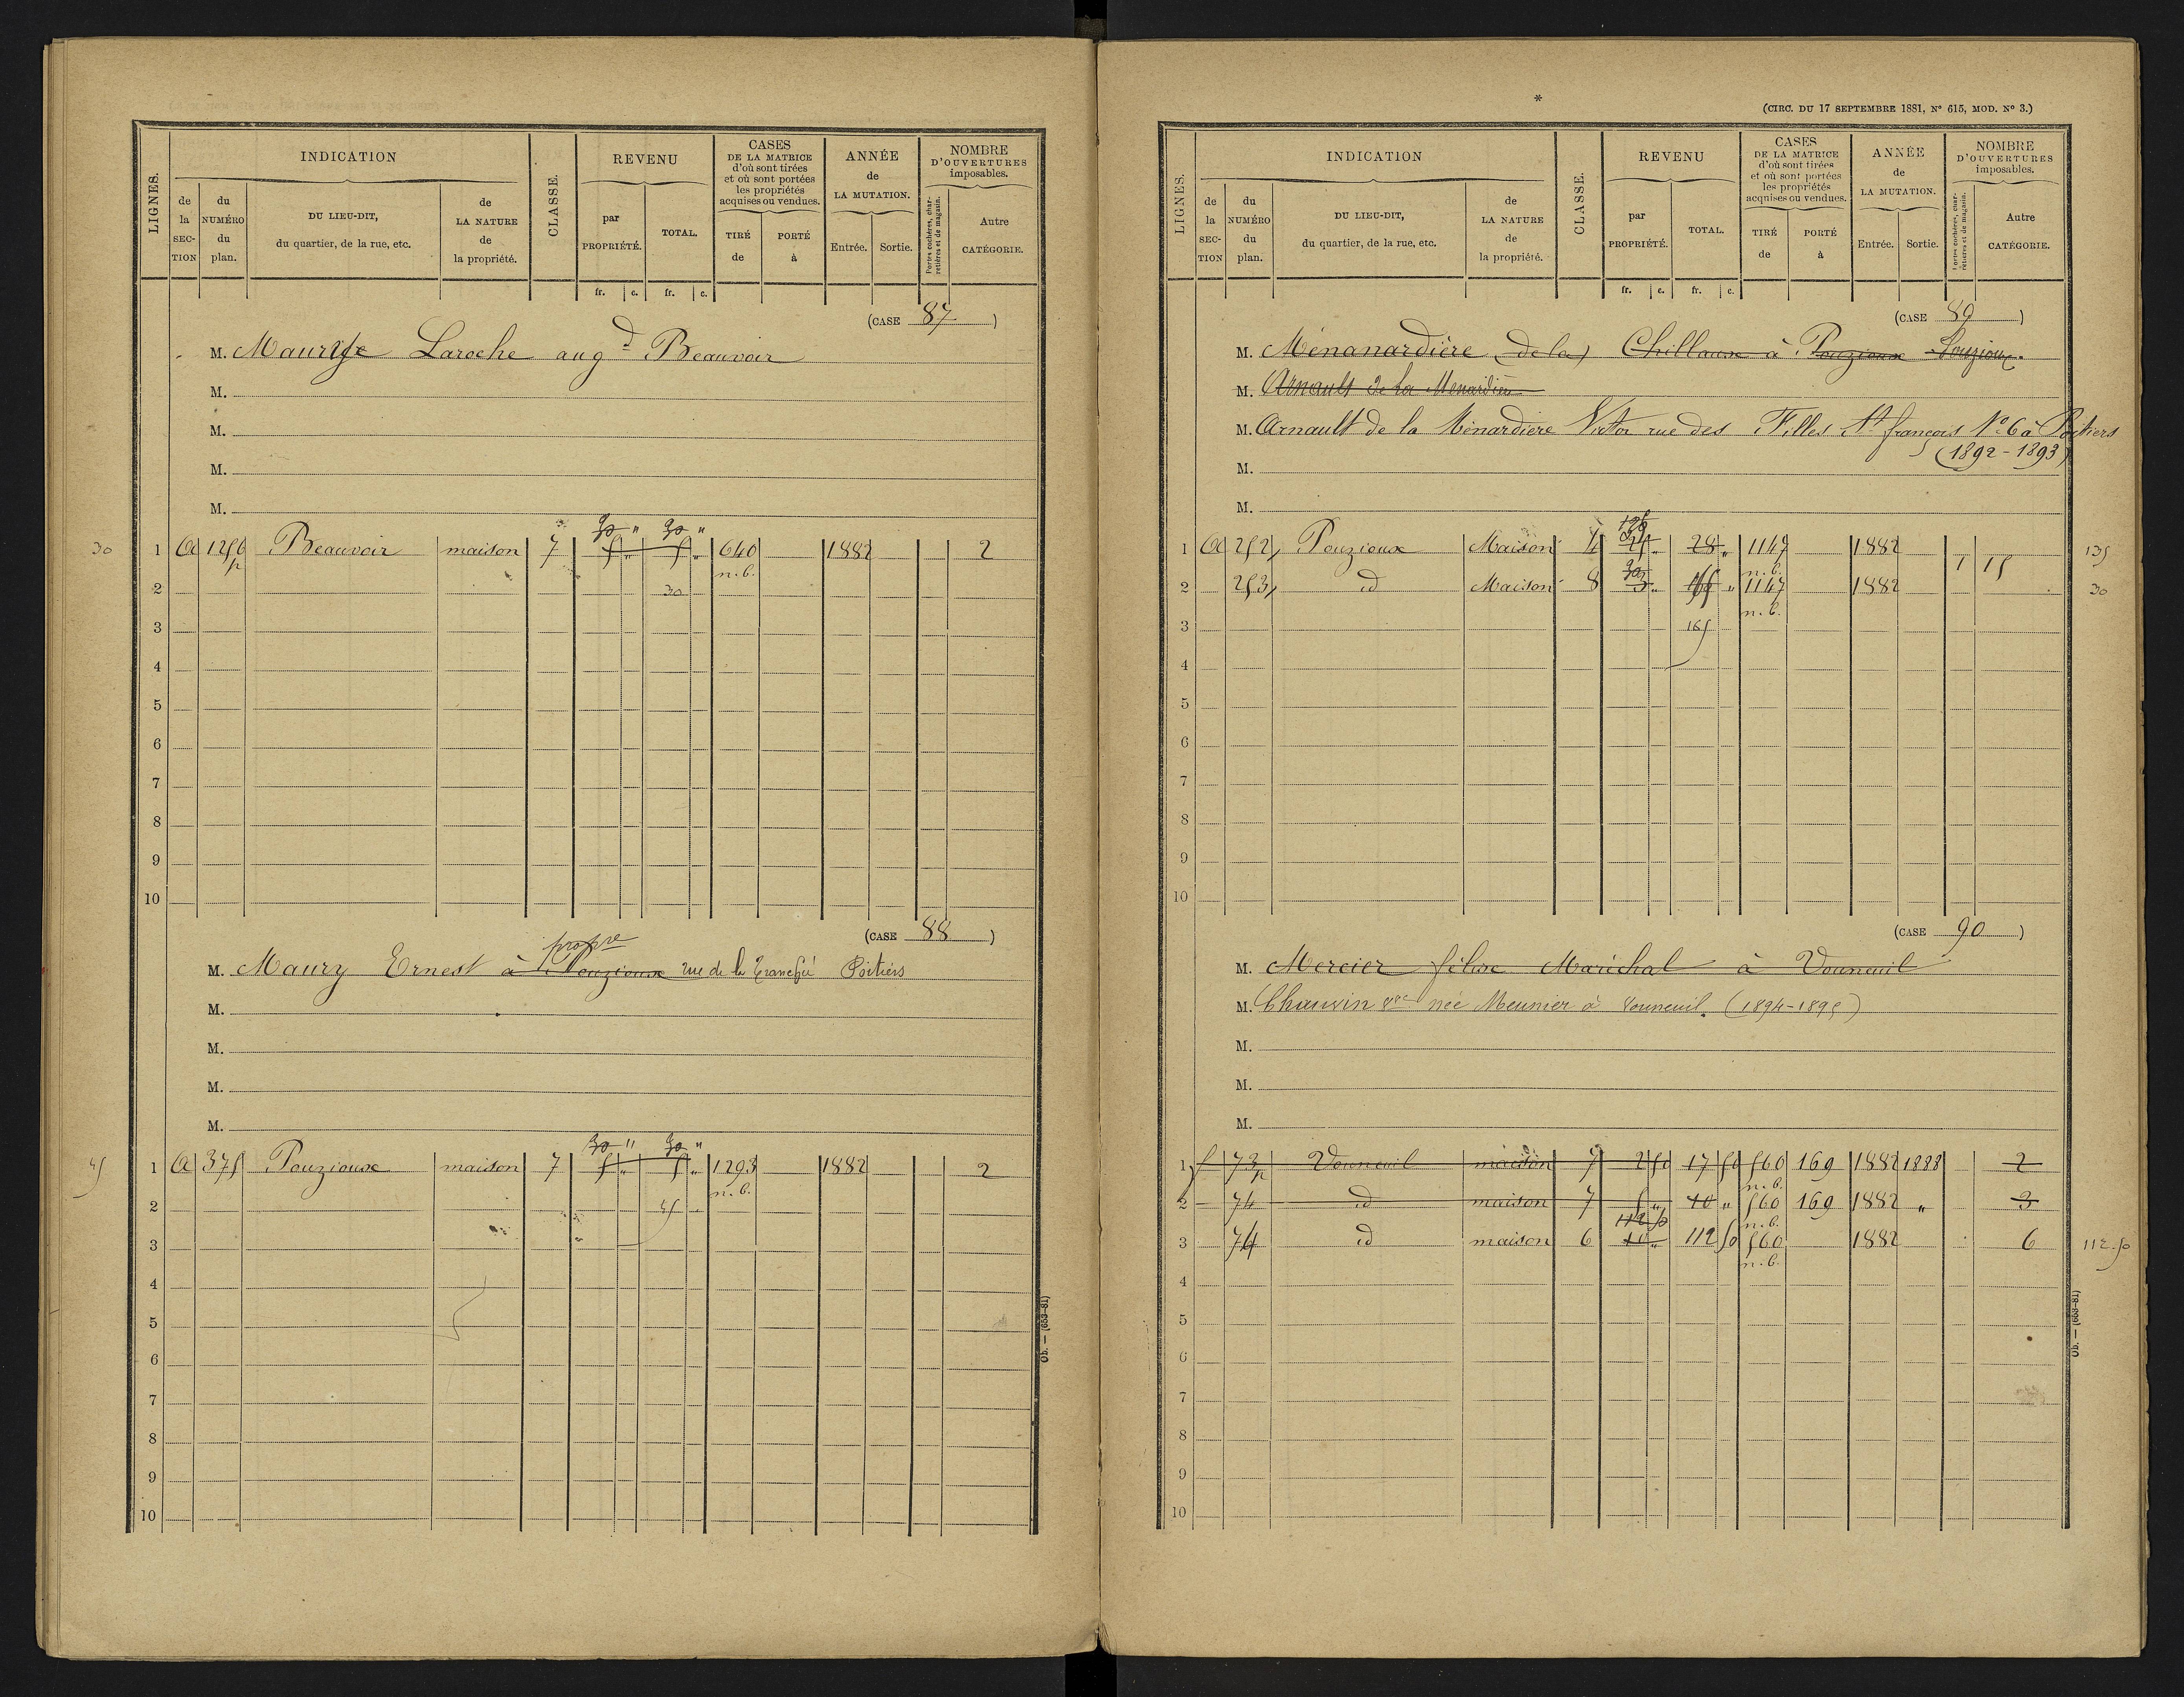 LIGNES.
INDICATION
de la SECTION
du NUMÉRO du plan.
DU LIEU-DIT, du quartier, de la rue, etc.
de LA NATURE de la propriété.
CLASSE.
REVENU
par PROPRIÉTÉ.
TOTAL.
fr. c. fr. c.
CASES DE LA MATRICE d'où sont tirées et où sont portées les propriétés acquises ou vendues.
TIRÉ de
PORTÉ à
ANNÉE de LA MUTATION.
Entrée. Sortie.
NOMBRE D'OUVERTURES imposables.
Portes cochères, charretières et de magasin.
Autre CATÉGORIE.
(CASE 87)
M. Laroche augd Beauvoir
M.
M.
M.
M.
30 " 30 "
30 1 A 1256 p Beauvoir maison 7 5 " 5 " 640 1882 2
n.b.
2 30
3
4
5
6
7
8
9
10
(CASE 88)
propre
M. Maury Ernest à Pouzioux rue de la Tranchée Poitiers
M.
M.
M.
M.
30 " 30 "
45 1 A 375 Pouzioux maison 7 5 " 5 " 1293 1882 2
n.b.
2 45
3
4
5
6
7
8
9
10
Ob. — (653-81)
*
(CIRC. DU 17 SEPTEMBRE 1881, No 615, MOD. No 3.)
LIGNES.
INDICATION
de la SECTION
du NUMÉRO du plan.
DU LIEU-DIT, du quartier, de la rue, etc.
de LA NATURE de la propriété.
CLASSE.
REVENU
par PROPRIÉTÉ.
TOTAL.
fr. c. fr. c.
CASES DE LA MATRICE d'où sont tirées et où sont portées les propriétés acquises ou vendues.
TIRÉ de
PORTÉ à
ANNÉE de LA MUTATION.
Entrée. Sortie.
NOMBRE D'OUVERTURES imposables.
Portes cochères, charretières et de magasin.
Autre CATÉGORIE.
(CASE 89)
M. Ménanardière (de la) à Pouzioux Pouzioux
M. Arnault de la Menardière
M. Arnault de la Ménardière Victor rue des Filles St françois No 6 à Poitiers
(1892-1893)
M.
M.
1 A 252 Pouzioux Maison 4 28 " 1147 1882 1 15 135
n.b.
30
2 253 id Maison 8 3 " " 1147 1882 30
n.b.
3 165
4
5
6
7
8
9
10
(CASE 90)
M. Mercier félix Maréchal à Vouneuil
M. Chauvin vve née Meunier à Vouneuil. (1894-1895)
M.
M.
M.
1 f 73 p Vouneuil maison 7 2 50 17 50 560 169 1882 1888 2
n.b.
2 74 id maison 7 5 " 10 " 560 169 1882 " 3
112 50 n.b.
3 74 id maison 6 112 50 560 1882 6 112.50
n.b.
4
5
6
7
8
9
10
Ob. — (653-81)